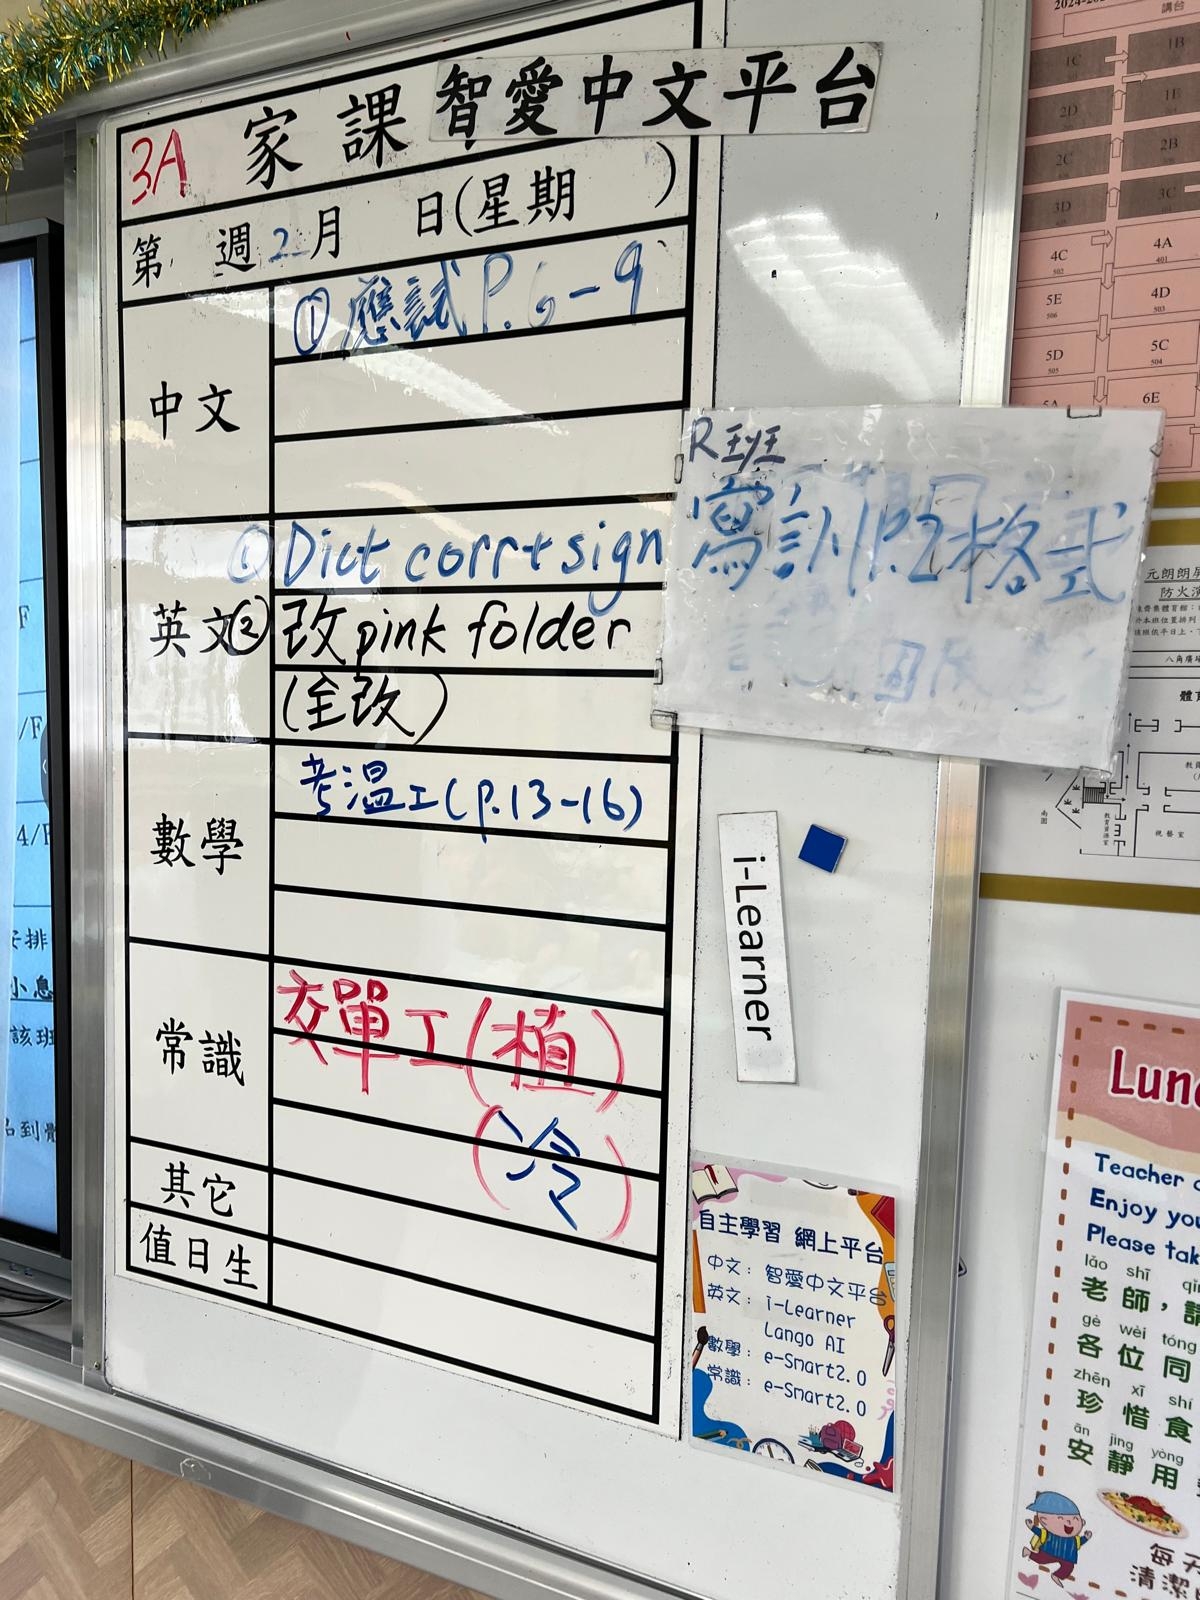 3A 家課 智愛中文平台
第 週 2 月 日(星期 )
中文
① 應試 P.6-9
英文
① Dict corr + sign
② 改 pink folder
(全改)
R班
寫訓P.2格式
數學
考溫工(p.13-16)
常識
交單工(植)
(冷)
其它
值日生
i-Learner
自主學習 網上平台
中文： 智愛中文平台
英文： i-Learner
Lango AI
數學： e-Smart2.0
常識： e-Smart2.0
講台
1C
1B
2D
1E
2C
2B
3D
3C
4C
502
4A
401
5E
506
4D
503
5D
505
5C
504
5A
6E
元朗朗屏
八角廣場
體育
視藝室
南園
Lunc
Teacher
Enjoy you
Please tak
lǎo shī
老師，請
gè wèi tóng
各位同
zhēn xī shí
珍惜食
ān jìng yòng
安靜用
每天
清潔
F
/F
4/F
安排
小息
該班